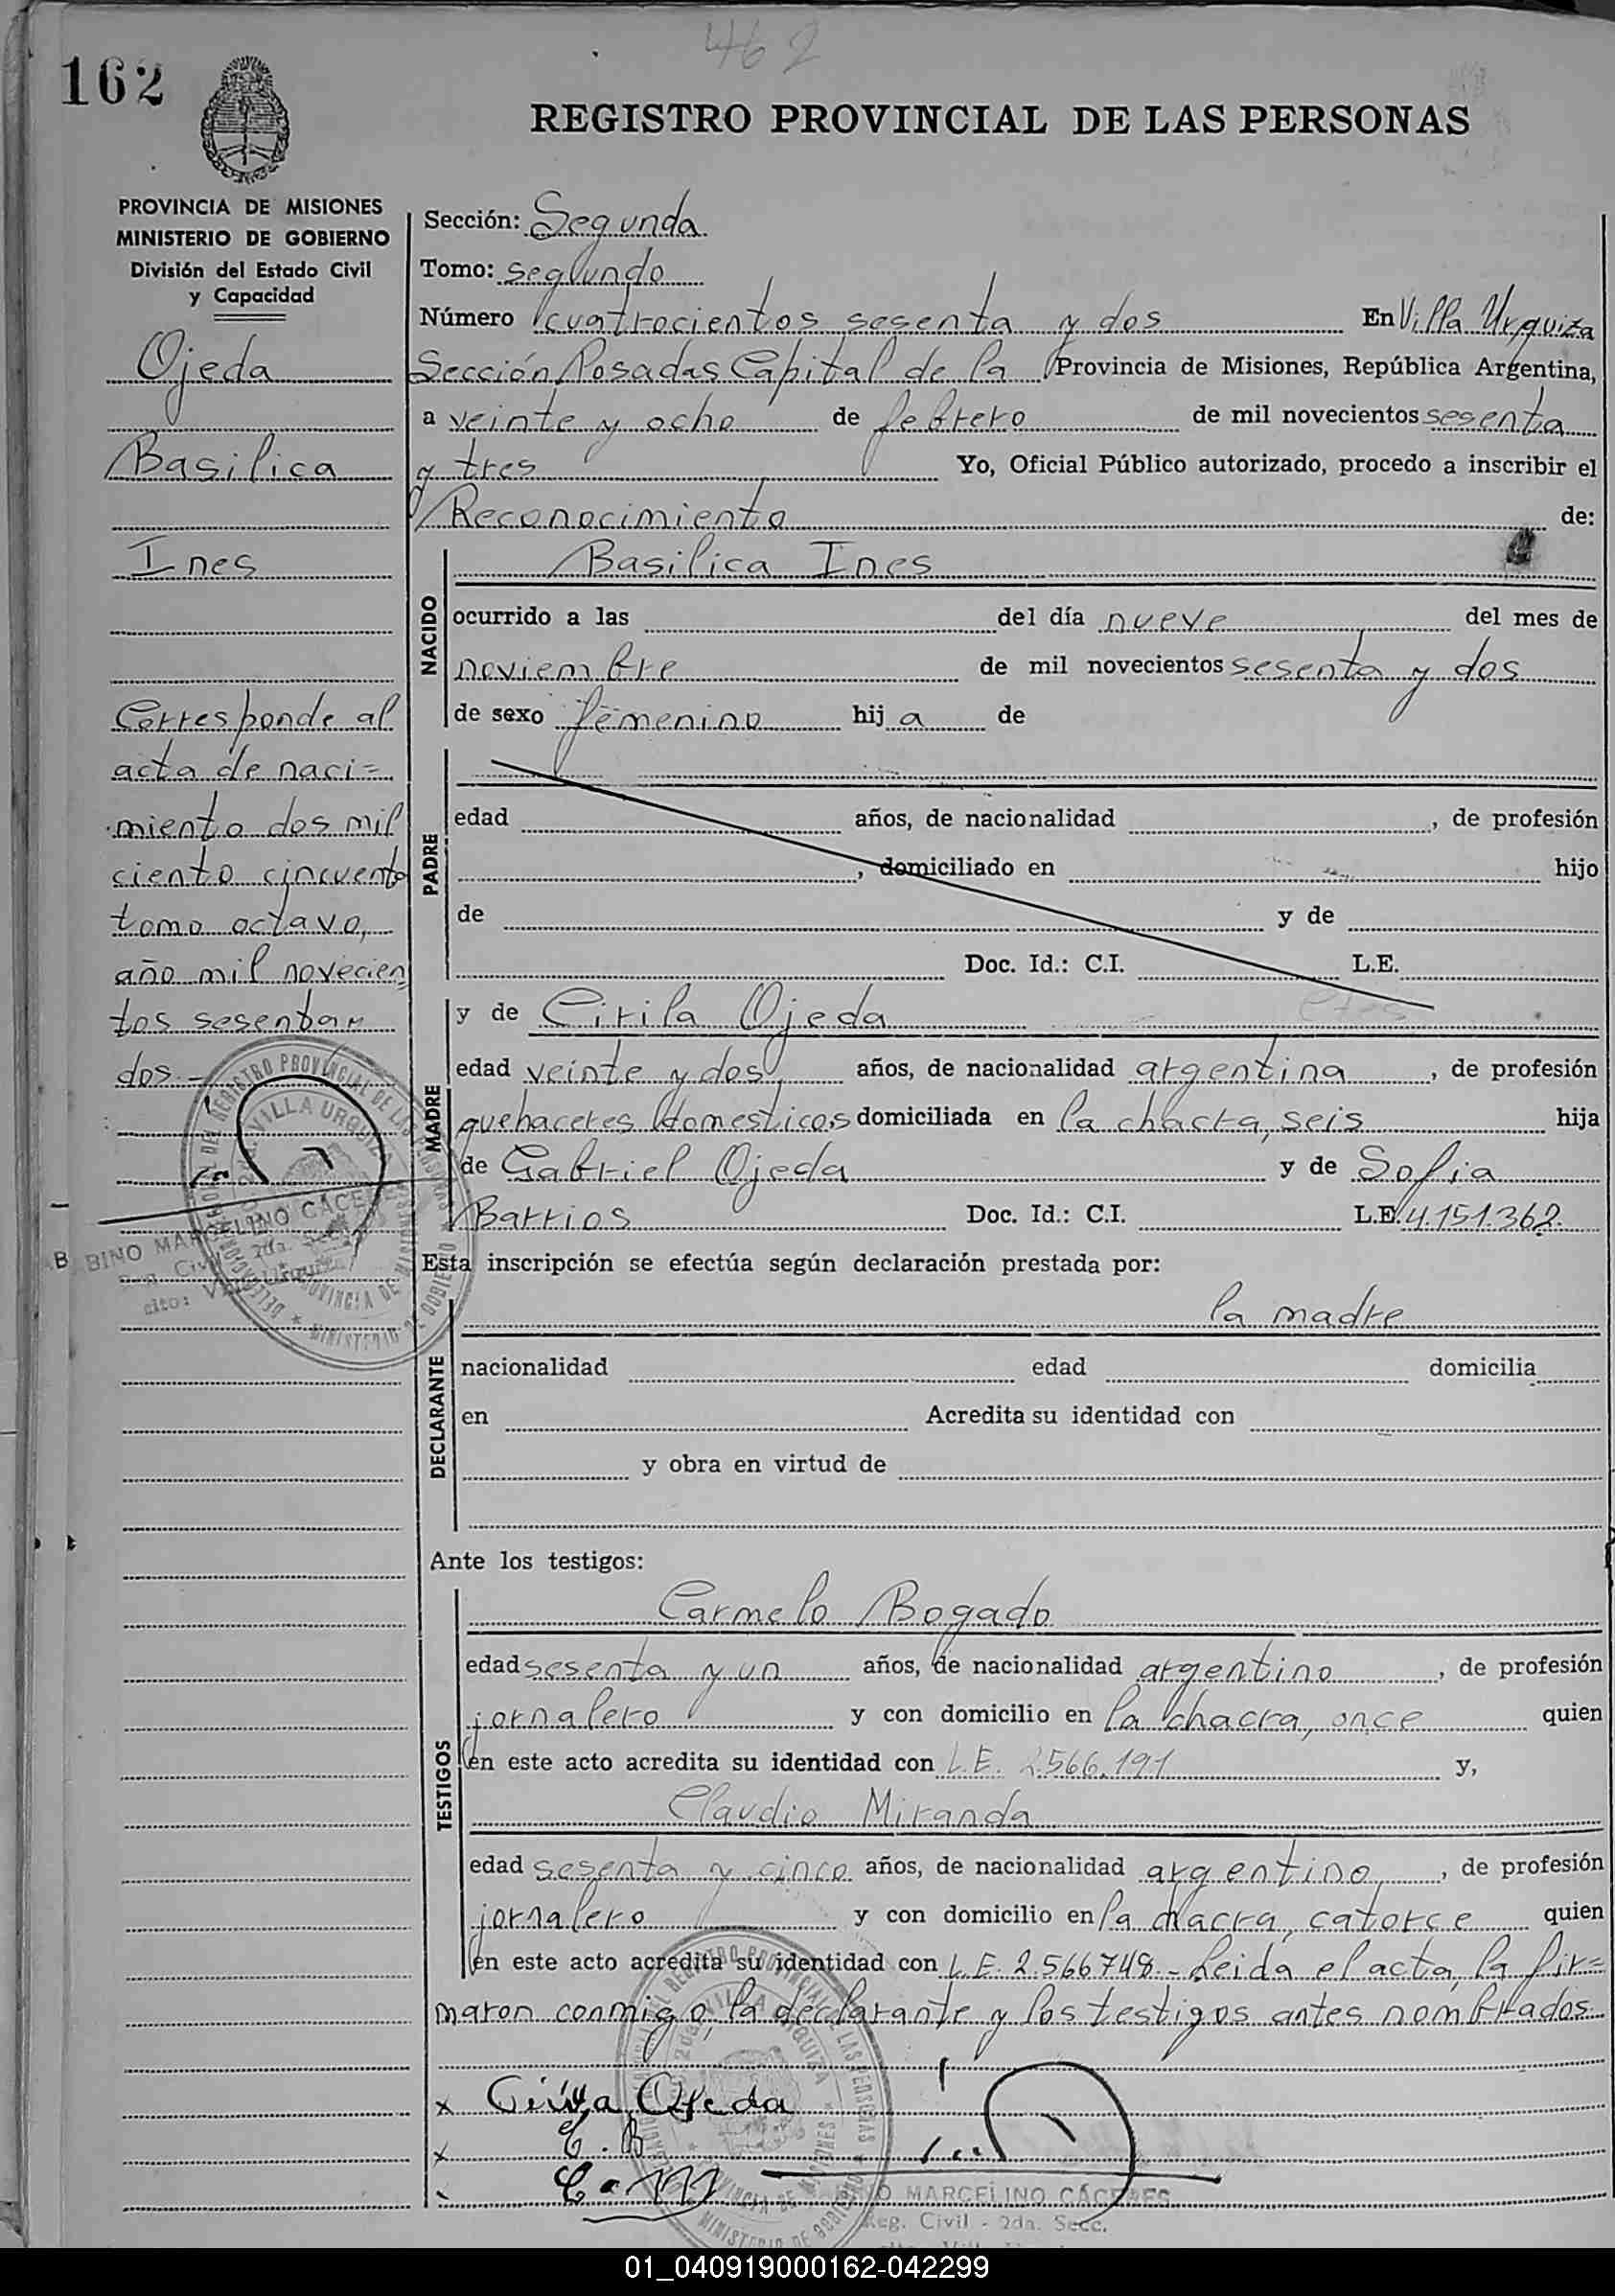 462
162
REGISTRO PROVINCIAL DE LAS PERSONAS
PROVINCIA DE MISIONES
MINISTERIO DE GOBIERNO
División del Estado Civil
y Capacidad
Ojeda
Basilica
Ines
Corresponde al
acta de naci=
miento dos mil
ciento cincuenta
tomo octavo,
año mil novecien
tos sesenta y
dos.-
Sección: Segunda
Tomo: segundo
Número cuatrocientos sesenta y dos En Villa Urquiza
Sección Posadas Capital de la Provincia de Misiones, República Argentina,
a veinte y ocho de febrero de mil novecientos sesenta
y tres Yo, Oficial Público autorizado, procedo a inscribir el
Reconocimiento de:
NACIDO
Basilica Ines
ocurrido a las del día nueve del mes de
noviembre de mil novecientos sesenta y dos
de sexo femenino hija de
PADRE
edad años, de nacionalidad , de profesión
, domiciliado en hijo
de y de
Doc. Id.: C.I. L.E.
MADRE
y de Cirila Ojeda
edad veinte y dos, años, de nacionalidad argentina , de profesión
quehaceres domesticos domiciliada en la chacra, seis hija
de Gabriel Ojeda y de Sofia
Barrios Doc. Id.: C.I. L.E. 4.151.362.
Esta inscripción se efectúa según declaración prestada por:
DECLARANTE
la madre
nacionalidad edad domicilia
en Acredita su identidad con
y obra en virtud de
Ante los testigos:
TESTIGOS
Carmelo Bogado
edad sesenta y un años, de nacionalidad argentino , de profesión
jornalero y con domicilio en la chacra, once quien
en este acto acredita su identidad con L.E. 2.566.191 y,
Claudio Miranda
edad sesenta y cinco años, de nacionalidad argentino, , de profesión
jornalero y con domicilio en la chacra, catorce quien
en este acto acredita su identidad con L.E. 2.566748.- Leida el acta, la fir=
maron conmigo, la declarante y los testigos antes nombrados.
x Cirila Ojeda
x C. B
C. M
MARCELINO CÁCERES
Reg. Civil - 2da. Secc.
01_040919000162-042299